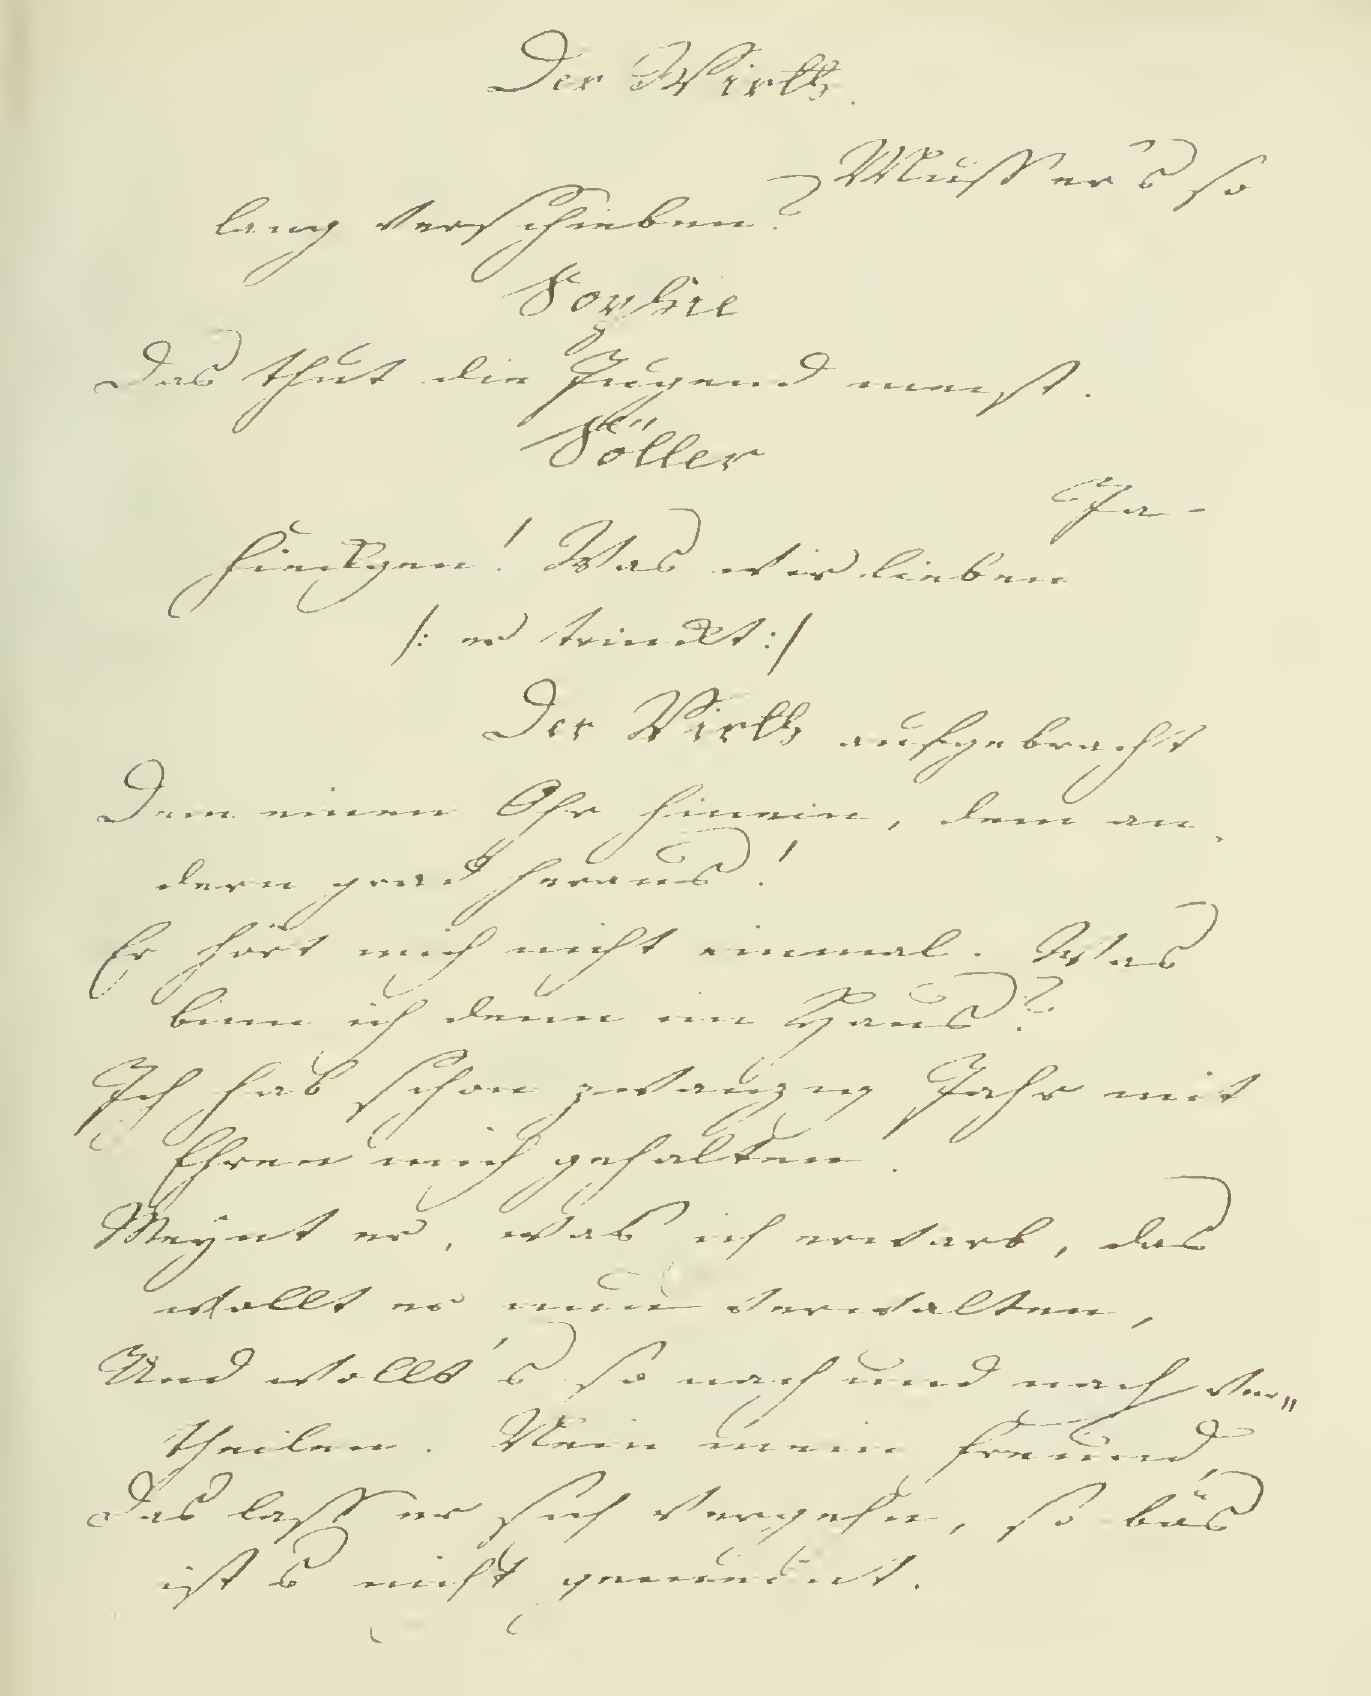 Der Wirth.
Muss er's so
lang verschieben?
Sophie
Das thut die Jugend meist.
Söller
Ja -
Fieckgen! Was wir lieben
/: er trinckt :/
Der Wirth aufgebracht
Dem einen Ohr hinein, dem an-
dern grad heraus!
Er hört mich nicht einmal. Was
binn ich denn im Haus?
Ich hab schon zwanzig Jahr mit
Ehren mich gehalten.
Meynt er, was ich erwarb, das
wollt er nun verwalten,
Und wollt's so nach und nach ver„
theilen. Nein mein Freund,
Das lass er sich vergehn, so bös
ist's nicht gemeint.